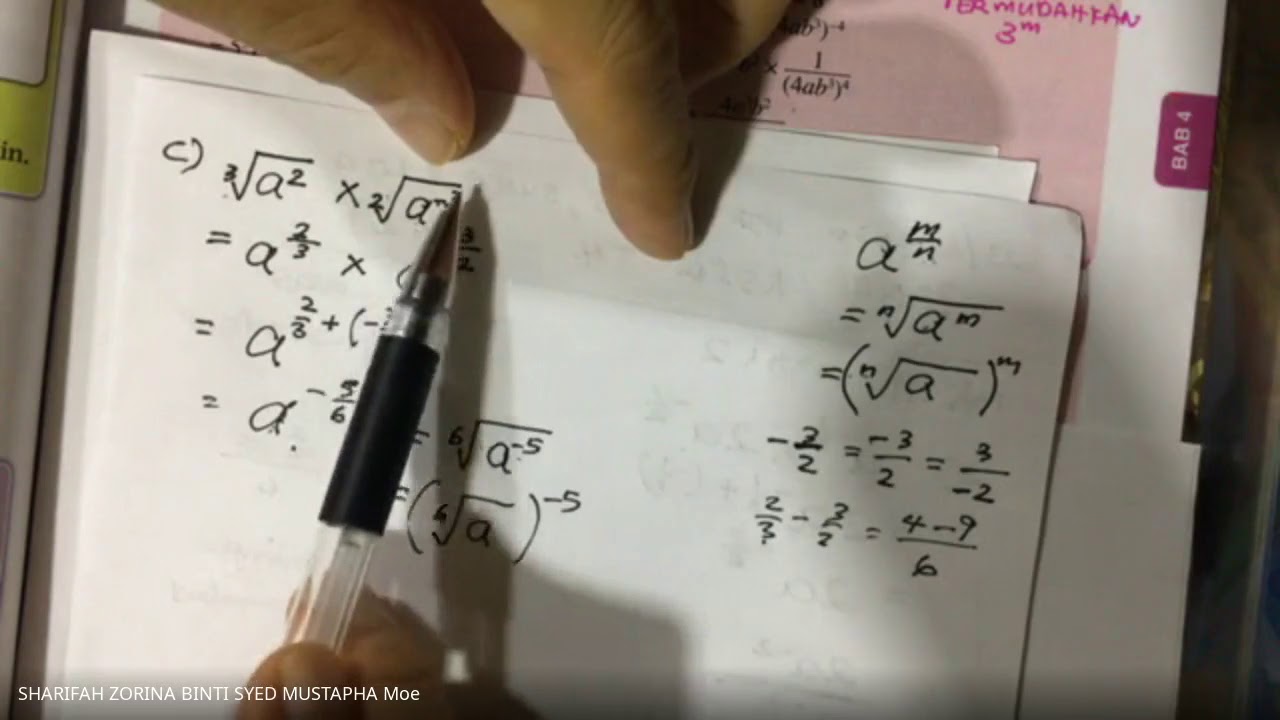 TERMUDAHKAN
3^m
ab³)⁻⁴
× 1/(4ab³)⁴
BAB 4
in.
c) ³√a² × ²√a
= a^(2/3) × ( 3/2
= a^(2/3 + (-
= a^(-5/6)
= ⁶√a⁻⁵
= (⁶√a)⁻⁵
a^(m/n)
= ⁿ√a^m
= (ⁿ√a)^m
-3/2 = -3/2 = 3/-2
2/3 - 3/2 = 4-9/6
SHARIFAH ZORINA BINTI SYED MUSTAPHA Moe